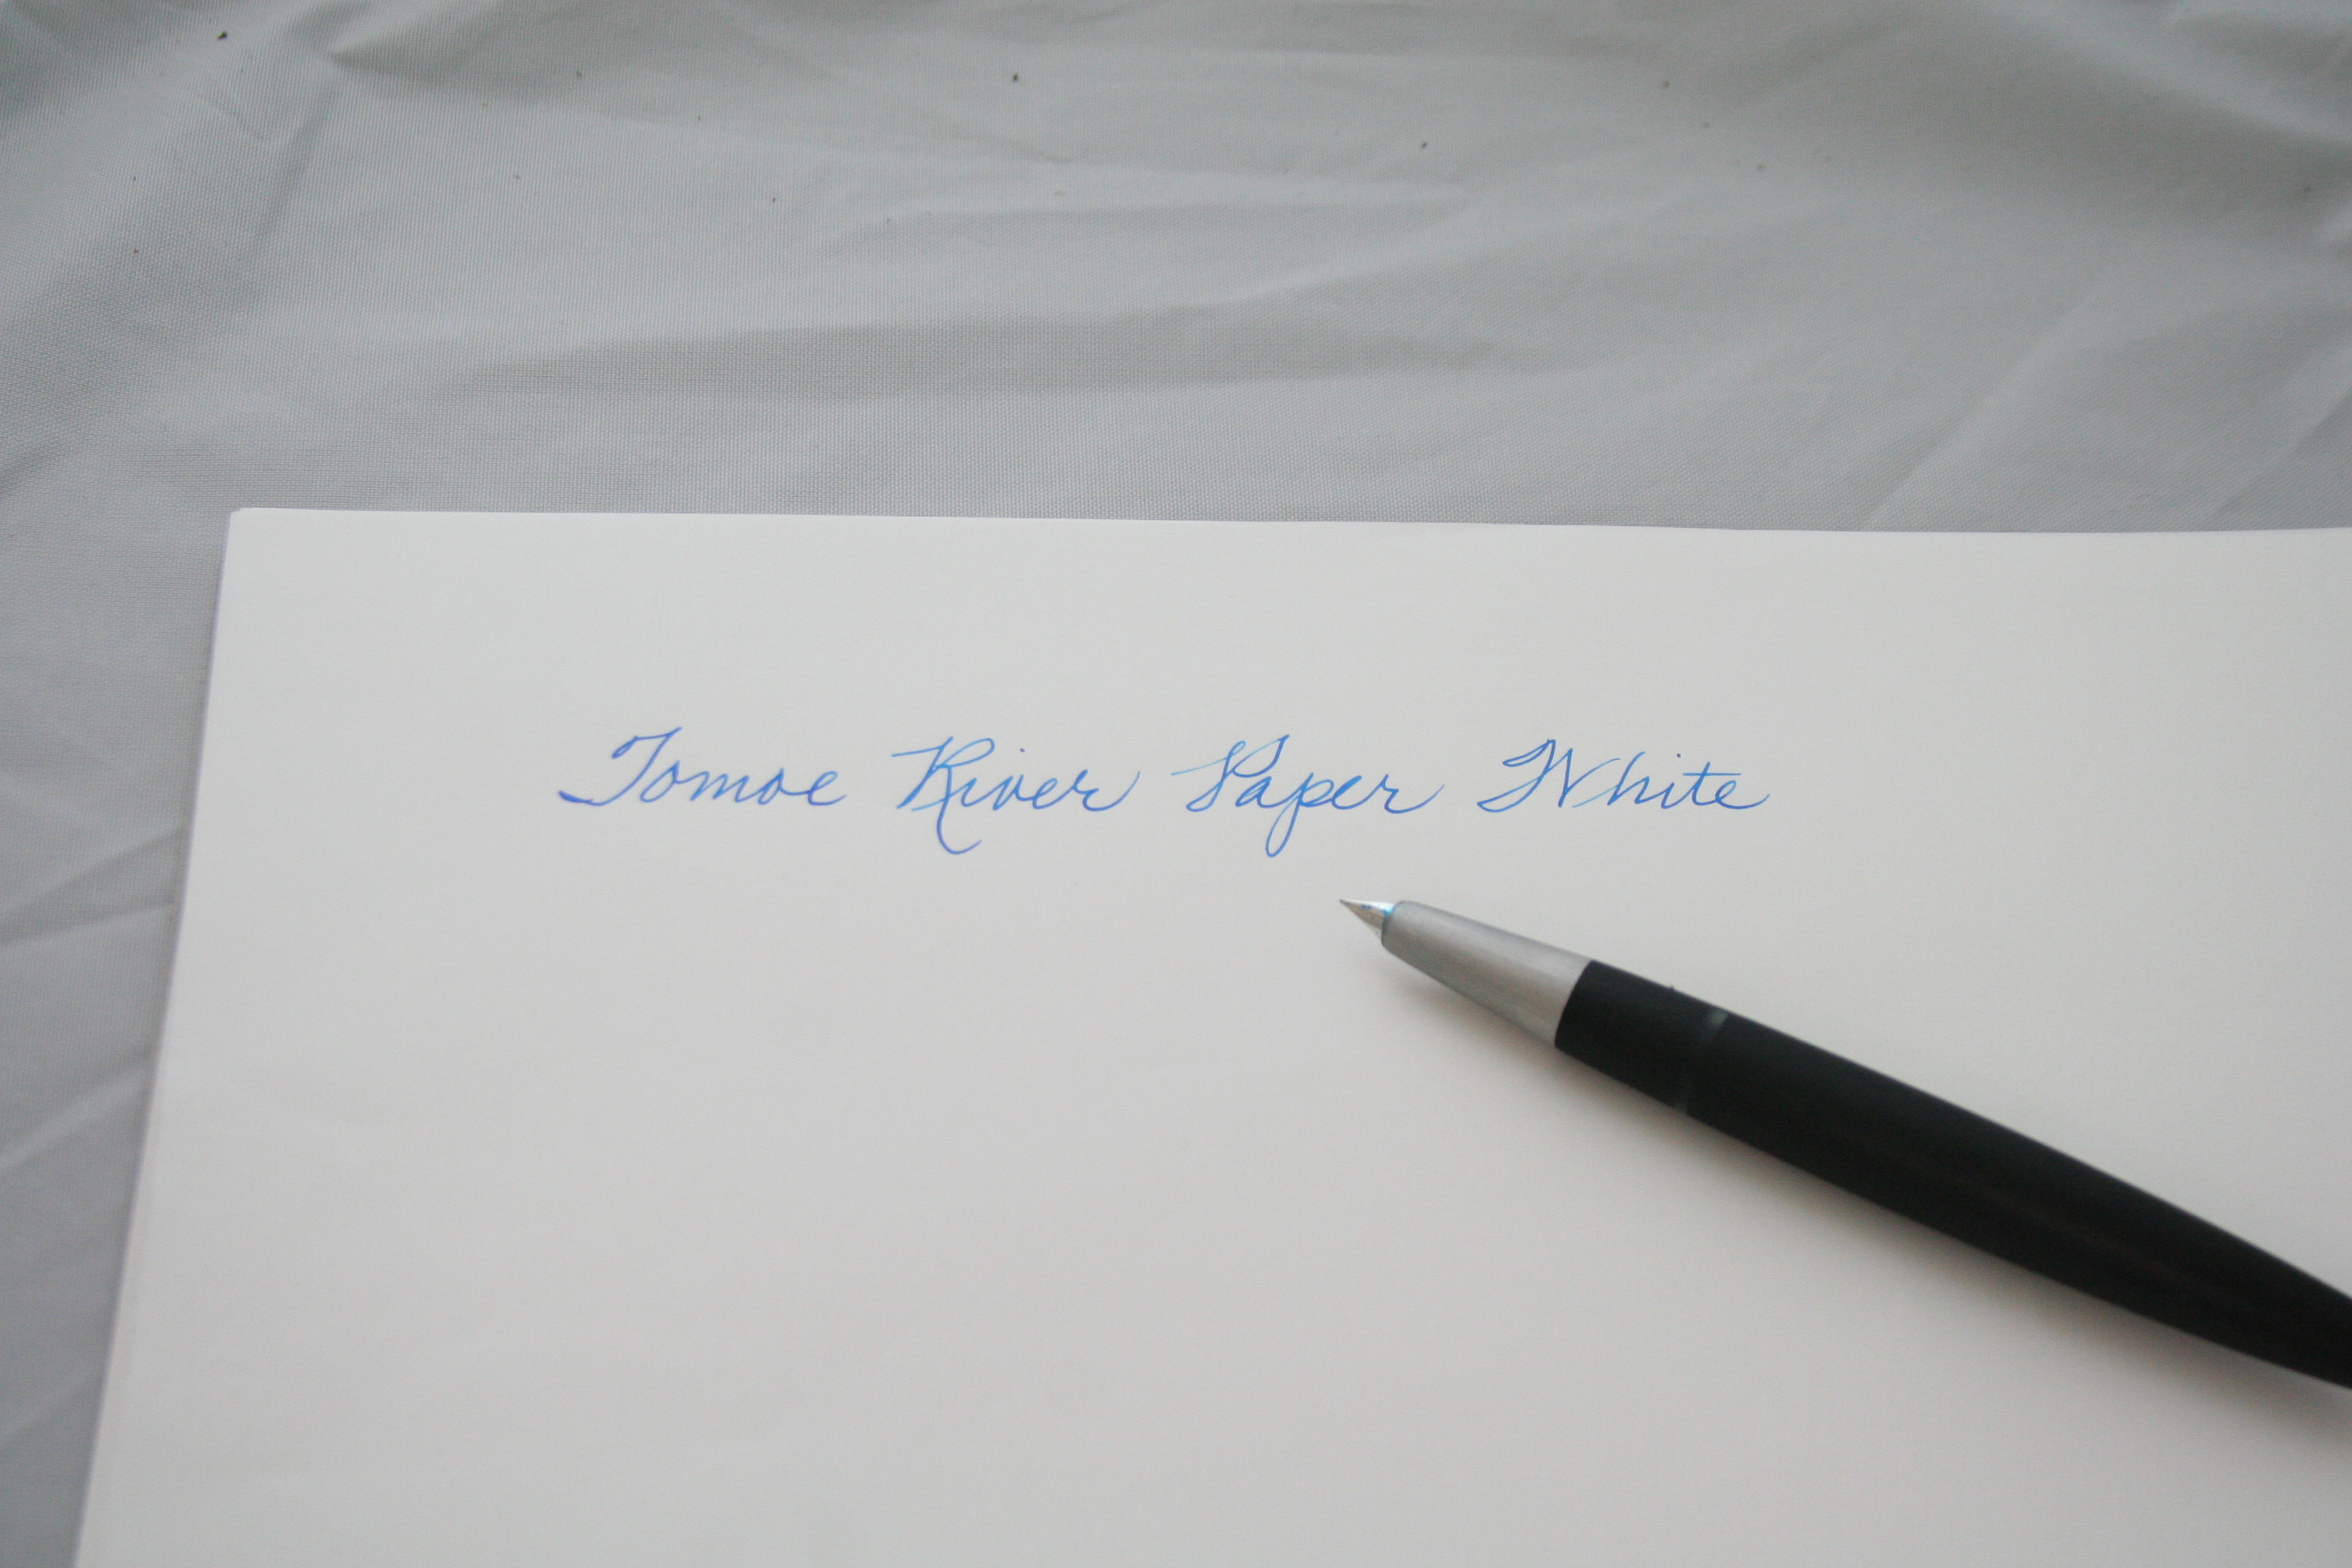 Tomoe River Paper White